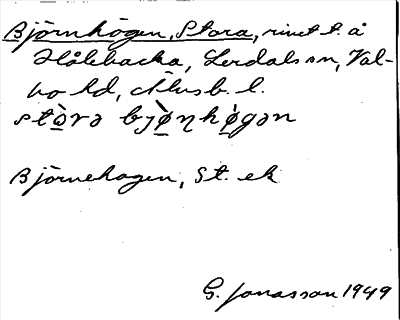 Björnhögen, Stora, rinet t. å
Hålebacka, Lerdals sn, Val-
bo hd, Älvsb. l.
stòrə bjø̀ŋhø̀gən
Björnehagen, St. ek
G. Jonasson 1949